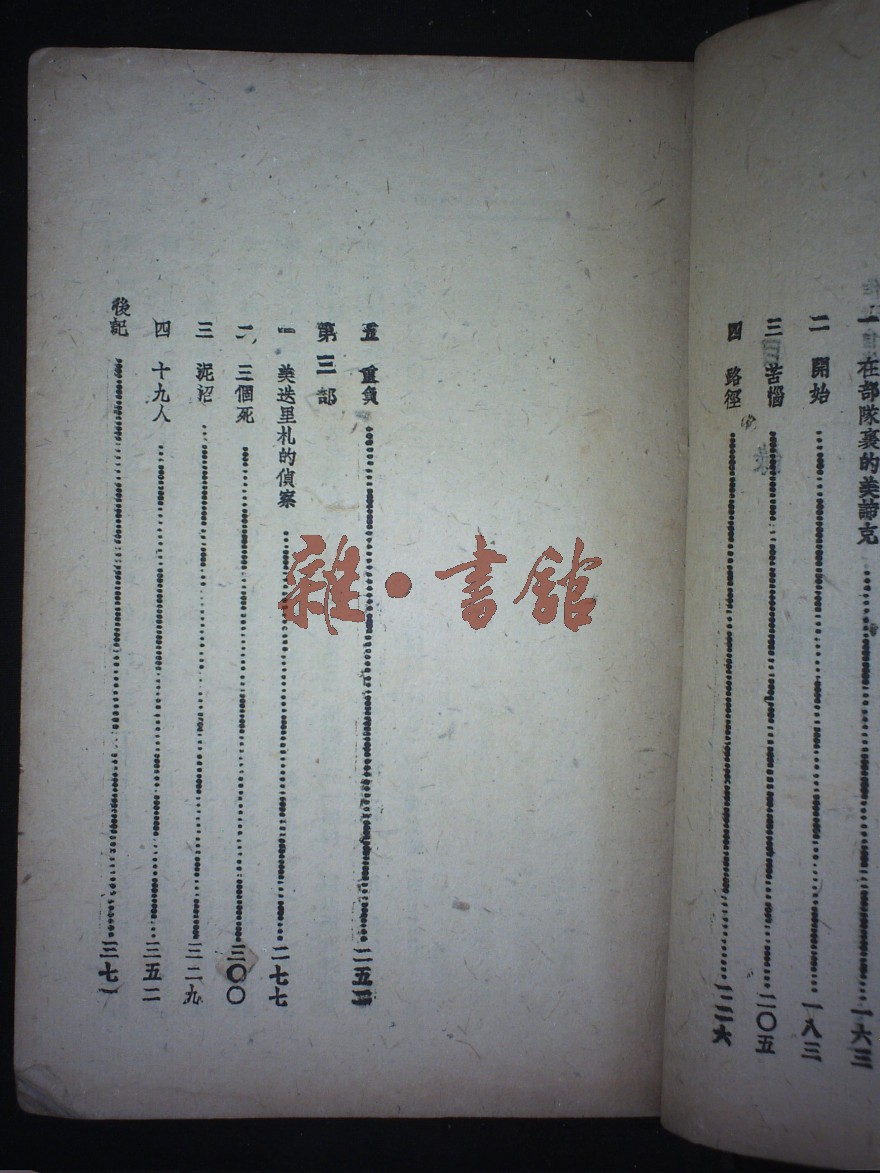 一 在部隊裏的美諦克……一六三
二 開始……一八三
三 苦惱……二〇五
四 路徑……二二六
五 重負……二五
第三部
一 美迭里札的偵察……二七七
二 三個死……三〇〇
三 泥沼……三二九
四 十九人……三五二
後記……三七一
雜·書館